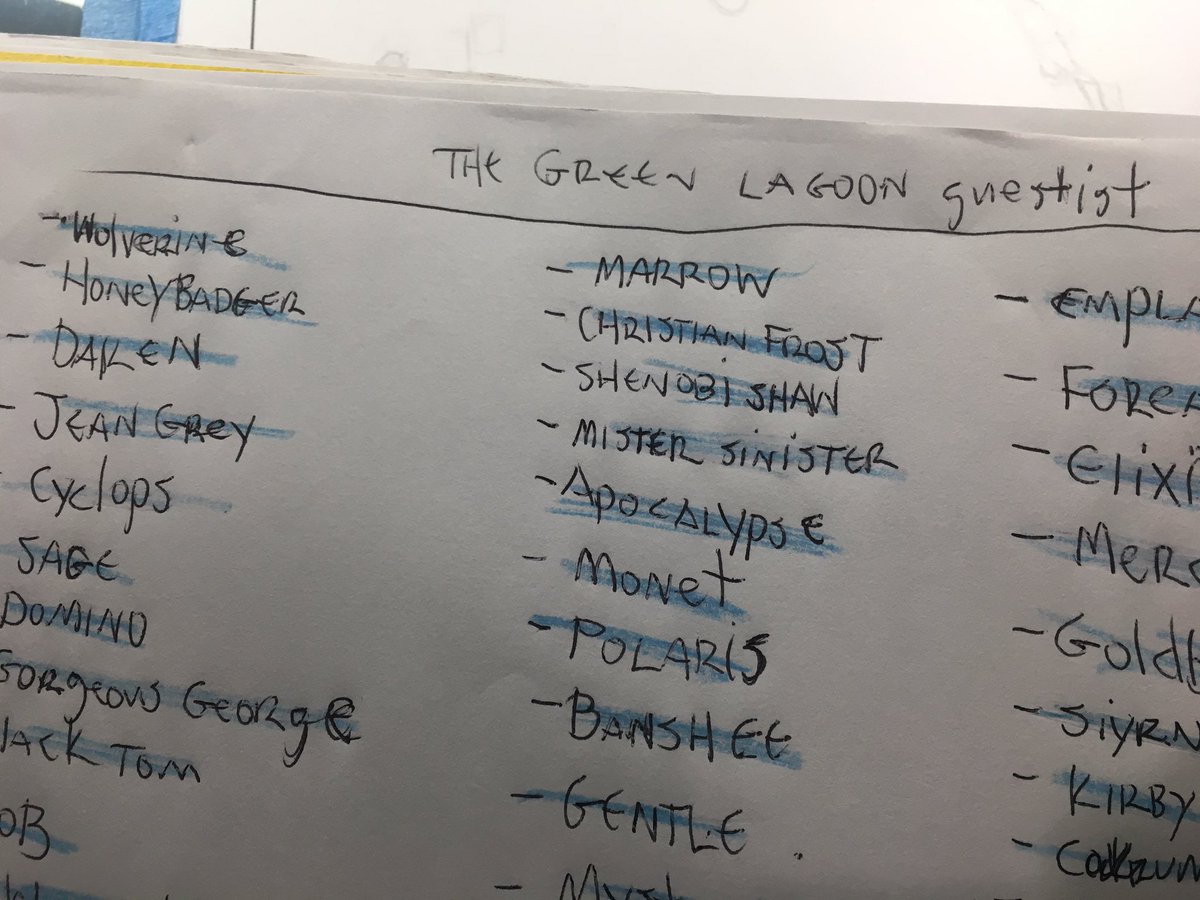 THE GREEN LAGOON guestlist
- Wolverine
- HONEYBADGER
- DAKEN
- JEAN GREY
- Cyclops
SAGE
DOMINO
GORGEOUS GEORGE
lACK TOM
OB
- MARROW
- CHRISTIAN FROST
- SHENOBI SHAW
- MISTER SINISTER
- APOCALYPSE
- MONET
- POLARIS
- BANSHEE
- GENTLE
- Myst
- EMPLA
- FORE
- Elixi
- MERC
- Gold
- SIYRN
- KIRBY
- COCKRUM